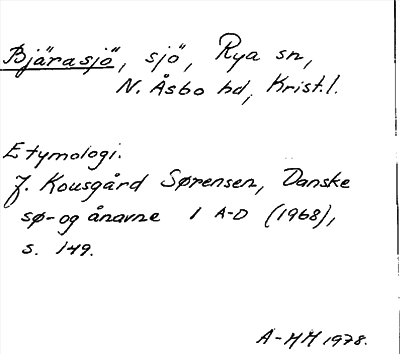 Bjärasjö, sjö, Rya sn,
N. Åsbo hd, Krist.l.
Etymologi.
J. Kousgård Sørensen, Danske
sø- og ånavne 1 A-D (1968),
s. 149.
A-MH 1978.